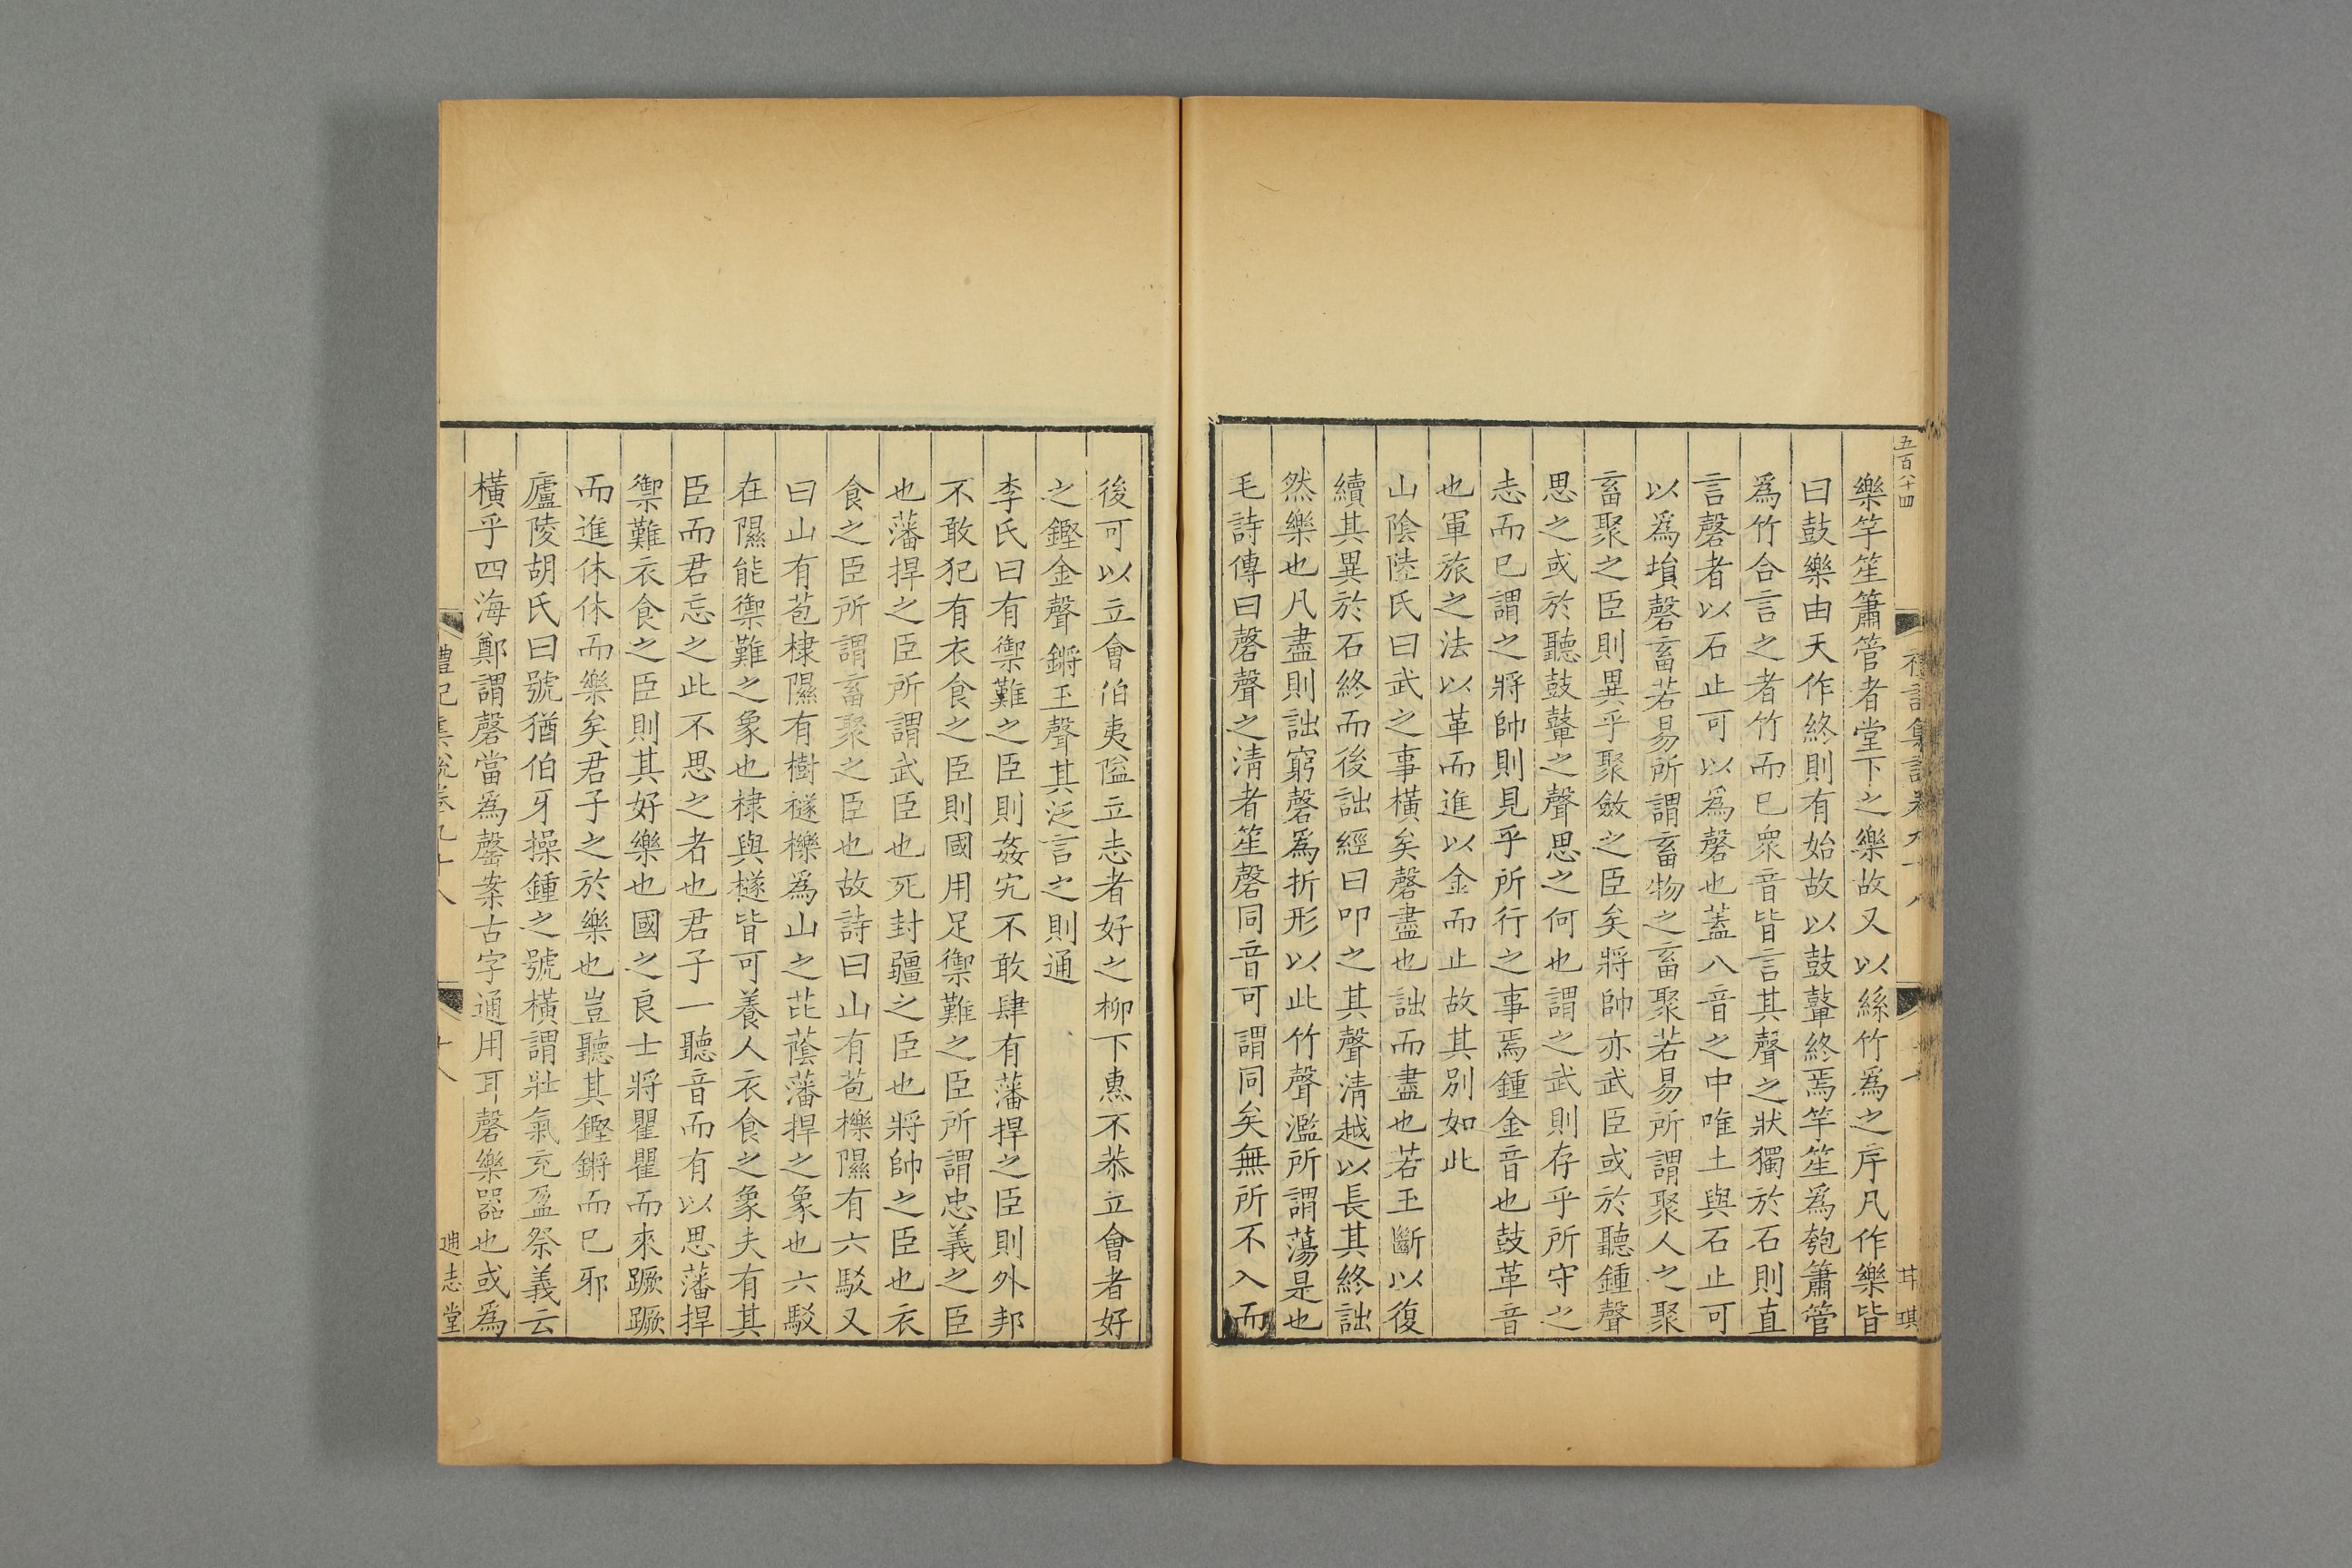 五百八十四
樂竽笙簫管者堂下之樂故又以絲竹爲之序凡作樂皆
曰鼓樂由天作終則有始故以鼓鼙終焉竽笙爲匏簫管
爲竹合言之者竹而已衆音皆言其聲之狀獨於石則直
言磬者以石止可以爲磬也蓋八音之中唯土與石止可
以爲塤磬畜若易所謂畜物之畜聚若易所謂聚人之聚
畜聚之臣則異乎聚斂之臣矣將帥亦武臣或於聽鍾聲
思之或於聽鼓鼙之聲思之何也謂之武則存乎所守之
志而已謂之將帥則見乎所行之事焉鍾金音也鼓革音
也軍旅之法以革而進以金而止故其別如此
山陰陸氏曰武之事橫矣磬盡也詘而盡也若玉斷以復
續其異於石終而後詘經曰叩之其聲清越以長其終詘
然樂也凡盡則詘窮磬爲折形以此竹聲濫所謂蕩是也
毛詩傳曰磬聲之清者笙磬同音可謂同矣無所不入而
後可以立會伯夷隘立志者好之柳下惠不恭立會者好
之鏗金聲鏘玉聲其泛言之則通
李氏曰有禦難之臣則姦宄不敢肆有藩捍之臣則外邦
不敢犯有衣食之臣則國用足禦難之臣所謂忠義之臣
也藩捍之臣所謂武臣也死封疆之臣也將帥之臣也衣
食之臣所謂畜聚之臣也故詩曰山有苞櫟隰有六駁又
曰山有苞棣隰有樹檖櫟爲山之芘蔭藩捍之象也六駁
在隰能禦難之象也棣與檖皆可養人衣食之象夫有其
臣而君忘之此不思之者也君子一聽音而有以思藩捍
禦難衣食之臣則其好樂也國之良士將瞿瞿而來蹶蹶
而進休休而樂矣君子之於樂也豈聽其鏗鏘而已邪
廬陵胡氏曰號猶伯牙操鍾之號橫謂壯氣充盈祭義云
橫乎四海鄭謂磬當爲罄案古字通用耳磬樂器也或爲
禮記集說卷九十八
十八
通志堂